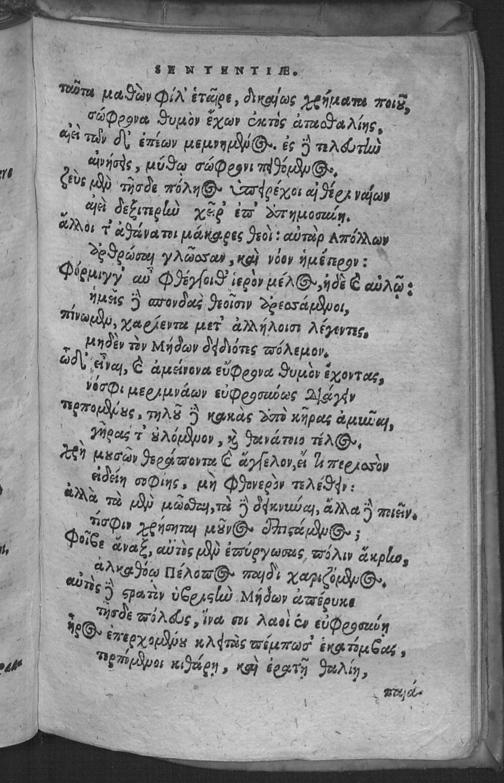 SENTENTIÆ.
ταῦτα μαθὼν φίλ' ἑταῖρε, δικαίως χρήματα ποιοῦ,
σώφρονα θυμὸν ἔχων ἐκτὸς ἀτασθαλίης,
αἰεὶ τῶν δ' ἐπέων μεμνημένος. ἐς δὲ τελευτὴν
αἰνήσεις, μύθῳ σώφρονι πειθόμενος.
ζεὺς μὲν τῆσδε πόληος ὑπειρέχοι αἰθέρι ναίων
αἰεὶ δεξιτερὴν χεῖρ' ἐπ' ἀπημοσύνῃ.
ἄλλοι τ' ἀθάνατοι μάκαρες θεοί: αὐτὰρ Απόλλων
ὀρθρώσαι γλῶσσαν, καὶ νόον ἡμέτερον:
Φόρμιγγ' αὖ φθέγγοιθ' ἱερὸν μέλος, ἠδὲ καὶ αὐλῷ:
ἡμεῖς δὲ σπονδὰς θεοῖσιν ἀρεσάμενοι,
πίνωμεν, χαρίεντα μετ' ἀλλήλοισι λέγοντες,
μηδὲν τὸν Μήδων δειδιότες πόλεμον.
ὧδ' εἶναι, καὶ ἀμείνονα εὔφρονα θυμὸν ἔχοντας,
νόσφι μεριμνάων εὐφροσύνως διάγειν
τερπομένους, τηλοῦ δὲ κακὰς ἀπὸ κῆρας ἀμῦναι,
γῆρας τ' οὐλόμενον, καὶ θανάτοιο τέλος.
χρὴ μουσῶν θεράποντα καὶ ἄγγελον, εἴ τι περισσὸν
εἰδείη σοφίης, μὴ φθονερὸν τελέθειν:
ἀλλὰ τὰ μὲν μῶσθαι, τὰ δὲ δεικνύναι, ἄλλα δὲ ποιεῖν.
τί σφιν χρήσηται μοῦνος ἐπιστάμενος;
Φοῖβε ἄναξ, αὐτὸς μὲν ἐπύργωσας πόλιν ἄκρην,
ἀλκαθόῳ Πέλοπος παιδὶ χαριζόμενος.
αὐτὸς δὲ στρατὸν ὑβριστὴν Μήδων ἀπέρυκε
τῆσδε πόλευς, ἵνα σοι λαοὶ ἐν εὐφροσύνῃ
ἦρος ἐπερχομένου κλειτὰς πέμπωσ' ἑκατόμβας,
τερπόμενοι κιθάρῃ, καὶ ἐρατῇ θαλίῃ,
παιά-